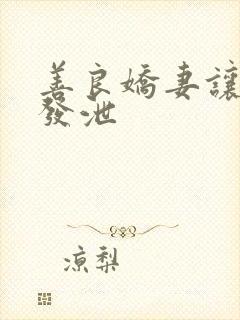 善良嬌妻讓
發泄
凉梨